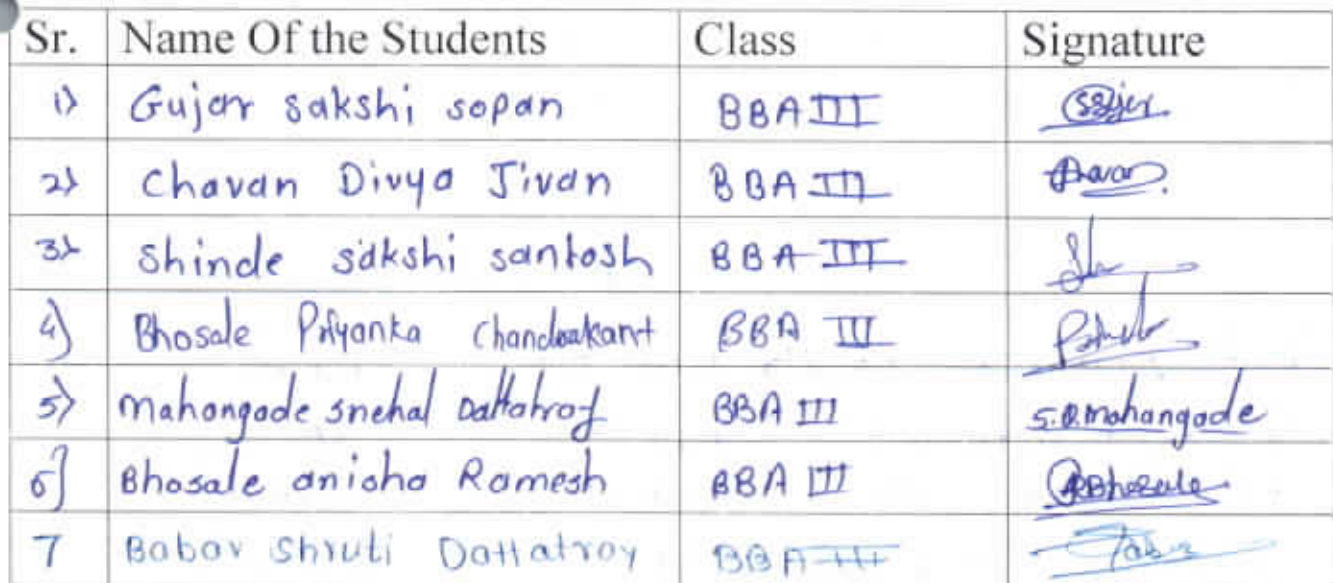 Sr. Name Of the Students Class Signature
1) Gujar sakshi sopan BBA III
2) Chavan Divya Jivan BBA III
3) Shinde sakshi santosh BBA III
4) Bhosale Priyanka Chandrakant BBA III
5) Mahangade snehal Dattatray BBA III S.D.mahangade
6] Bhosale anisha Ramesh BBA III Bhosale
7 Babar Shruti Dattatray BBA III